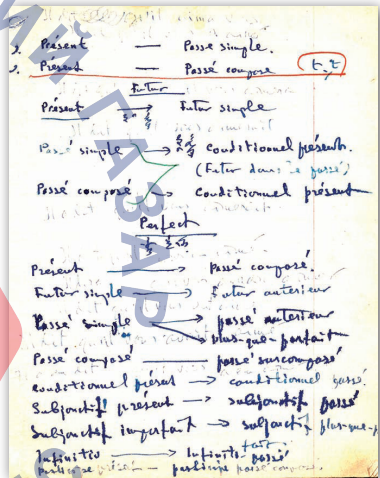 1. Présent — Passé simple.
2. Présent — Passé composé
Futur
Présent → Futur simple
Passé simple → conditionnel présent.
(Futur dans le passé)
Passé composé → Conditionnel présent
Perfect
Présent → passé composé.
Futur simple → Futur anterieur
Passé simple → passé anterieur
plus-que-parfait
Passé composé — passé surcomposé
conditionnel présent → conditionnel passé.
Subjonctif présent → subjonctif passé
Subjonctif imparfait → subjonctif plus-que-p
fait
Infinitiv → Infinitif passé
participe présent — participe passé composé.